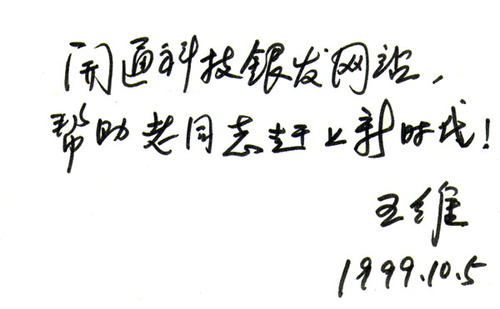 开通科技银发网站，
帮助老同志赶上新时代！
王维
1999.10.5